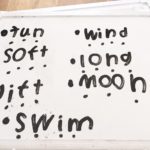 fun
soft
swim
wind
long
moon